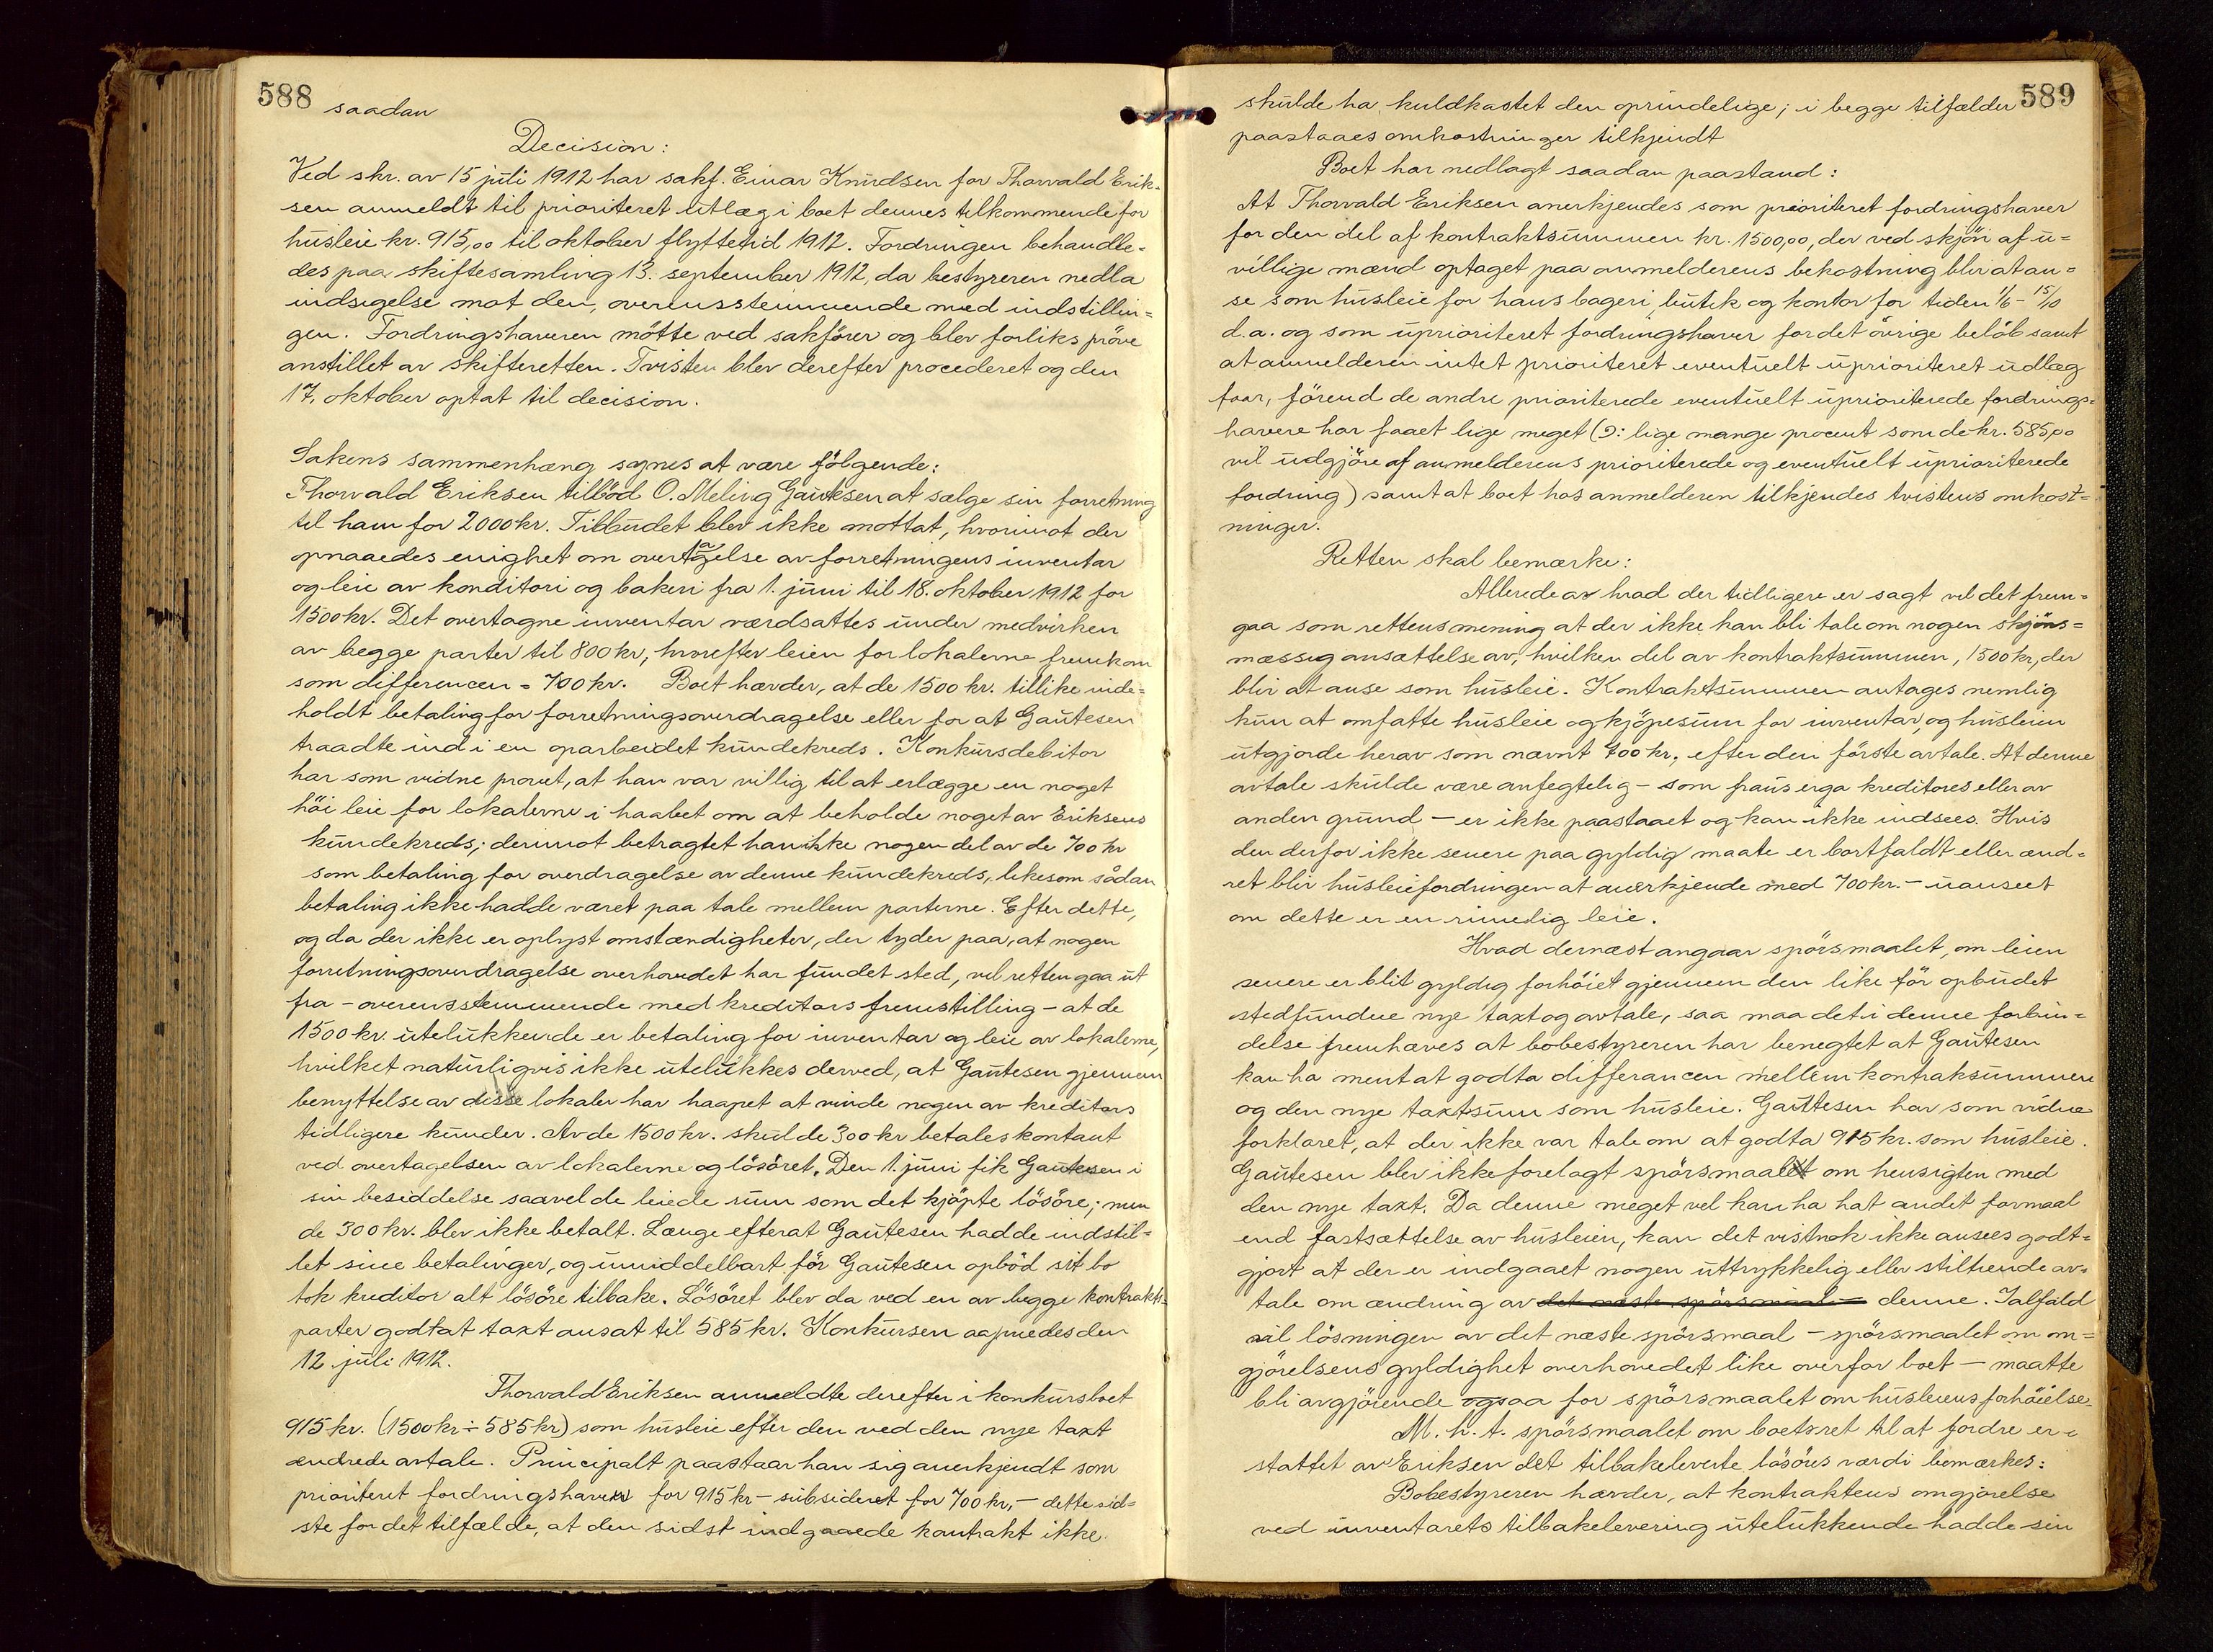 588
saadan
Decision:
Ved skr. av 15 juli 1912 har sakf. Einar Knudsen for Thorvald Erik-
sen anmeldt til prioriteret utlæg i boet dennes tilkommende for
husleie kr. 915,00 til oktober flyttetid 1912. Fordringen behandle-
des paa skiftesamling 13. september 1912, da bestyreren nedla
indsigelse mot den, overensstemmende med indstillin-
gen. Fordringshaveren mötte ved sakförer og blev forliks pröve
anstillet av skifteretten. Tvisten blev derefter procederet og den
17. oktober optat til decision.
Sakens sammenhæng synes at være fölgende:
Thorvald Eriksen tilböd O. Meling Gautesen at sælge sin forretning
til ham for 2000 kr. Tilbudet blev ikke mottat, hvorimot der
opnaaedes enighet om overtagelse av forretningens inventar
og leie av konditori og bakeri fra 1. juni til 18. oktober 1912 for
1500 kr. Det overtagne inventar værdsattes under medvirken
av begge parter til 800 kr, hvorefter leien for lokalerne fremkom
som differencen = 700 kr. Boet hævder, at de 1500 kr. tillike inde-
holdt betaling for forretningsoverdragelse eller for at Gautesen
traadte ind i en oparbeidet kundekreds. Konkursdebitor
har som vidne provet, at han var villig til at erlægge en noget
höi leie for lokalerne i haabet om at beholde noget av Eriksens
kundekreds; derimot betragtet han ikke nogen del av de 700 kr
som betaling for overdragelse av denne kundekreds, likesom sådan
betaling ikke hadde været paa tale mellem parterne. Efter dette,
og da der ikke er oplyst omstændigheter, der tyder paa, at nogen
forretningsoverdragelse overhovedet har fundet sted, vil retten gaa ut
fra – overensstemmende med kreditors fremstilling – at de
1500 kr. utelukkende er betaling for inventar og leie av lokalerne,
hvilket naturligvis ikke utelukkes derved, at Gautesen gjennem
benyttelse av disse lokaler har haapet at vinde nogen av kreditors
tidligere kunder. Av de 1500 kr. skulde 300 kr betales kontant
ved overtagelsen av lokalerne og lösöret. Den 1. juni fik Gautesen i
sin besiddelse saavel de leiede rum som det kjöpte lösöre; men
de 300 kr. blev ikke betalt. Længe efterat Gautesen hadde indstil-
let sine betalinger, og umiddelbart för Gautesen opböd sit bo
tok kreditor alt lösöre tilbake. Lösöret blev da ved en av begge kontrakts-
parter godtat taxt ansat til 585 kr. Konkursen aapnedes den
12 juli 1912.
Thorvald Eriksen anmeldte derefter i konkursboet
915 kr. (1500 kr ÷ 585 kr) som husleie efter den ved den nye taxt
ændrede avtale. Principalt paastaar han sig anerkjendt som
prioriteret fordringshaver for 915 kr – subsidiert for 700 kr, – dette sid-
ste for det tilfælde, at den sidst indgaaede kontrakt ikke
589
skulde ha kuldkastet den oprindelige; i begge tilfælder
paastaaes omkostninger tilkjendt
Boet har nedlagt saadan paastand:
At Thorvald Eriksen anerkjendes som prioriteret fordringshaver
for den del af kontraktsummen kr. 1500,00, der ved skjön af u-
villige mænd optaget paa anmelderens bekostning blir at an-
se som husleie for hans bageri, butik og kontor for tiden 1/6 – 15/10
d.a. og som uprioriteret fordringshaver for det övrige belöb samt
at anmelderen intet prioriteret eventuelt uprioriteret udlæg
faar, förend de andre prioriterede eventuelt uprioriterede fordrings-
havere har faaet lige meget (ɔ: lige mange procent som de kr. 585,00
vil udgjöre af anmelderens prioriterede og eventuelt uprioriterede
fordring) samt at boet hos anmelderen tilkjendes tvistens omkost-
ninger.
Retten skal bemærke:
Allerede av hvad der tidligere er sagt vil det frem-
gaa som rettens mening at der ikke kan bli tale om nogen skjöns-
mæssig ansættelse av, hvilken del av kontraktsummen, 1500 kr, der
blir at anse som husleie. Kontraktsummen antages nemlig
kun at omfatte husleie og kjöpesum for inventar, og husleien
utgjorde herav som nævnt 700 kr. efter den förste avtale. At denne
avtale skulde være anfegtelig – som fraus erga kreditores eller av
anden grund – er ikke paastaaet og kan ikke indsees. Hvis
den derfor ikke senere paa gyldig maate er bortfaldt eller ænd-
ret blir husleiefordringen at anerkjende med 700 kr. – uanseet
om dette er en rimelig leie.
Hvad dernæst angaar spörsmaalet, om leien
senere er blit gyldig forhöiet gjennem den like för opbudet
stedfundne nye taxt og avtale, saa maa det i denne forbin-
delse fremhæves at bobestyreren har benegtet at Gautesen
kan ha ment at godta differancen mellem kontraksummen
og den nye taxtsum som husleie. Gautesen har som vidne
forklaret, at der ikke var tale om at godta 915 kr. som husleie.
Gautesen blev ikke forelagt spörsmaalet om hensigten med
den nye taxt. Da denne meget vel kan ha hat andet formaal
end fastsættelse av husleien, kan det vistnok ikke ansees godt-
gjort at der er indgaaet nogen uttrykkelig eller stiltiende av-
tale om ændring av det næste spörsmaal – denne. Ialfald
vil lösningen av det næste spörsmaal – spörsmaalet om om-
gjörelsens gyldighet overhovedet like overfor boet – maatte
bli avgjörende ogsaa for spörsmaalet om husleiens forhöielse.
M. h. t. spörsmaalet om boets ret til at fordre er-
stattet av Eriksen det tilbakeleverte lösöres værdi bemærkes:
Bobestyreren hævder, at kontraktens omgjörelse
ved inventarets tilbakelevering utelukkende hadde sin